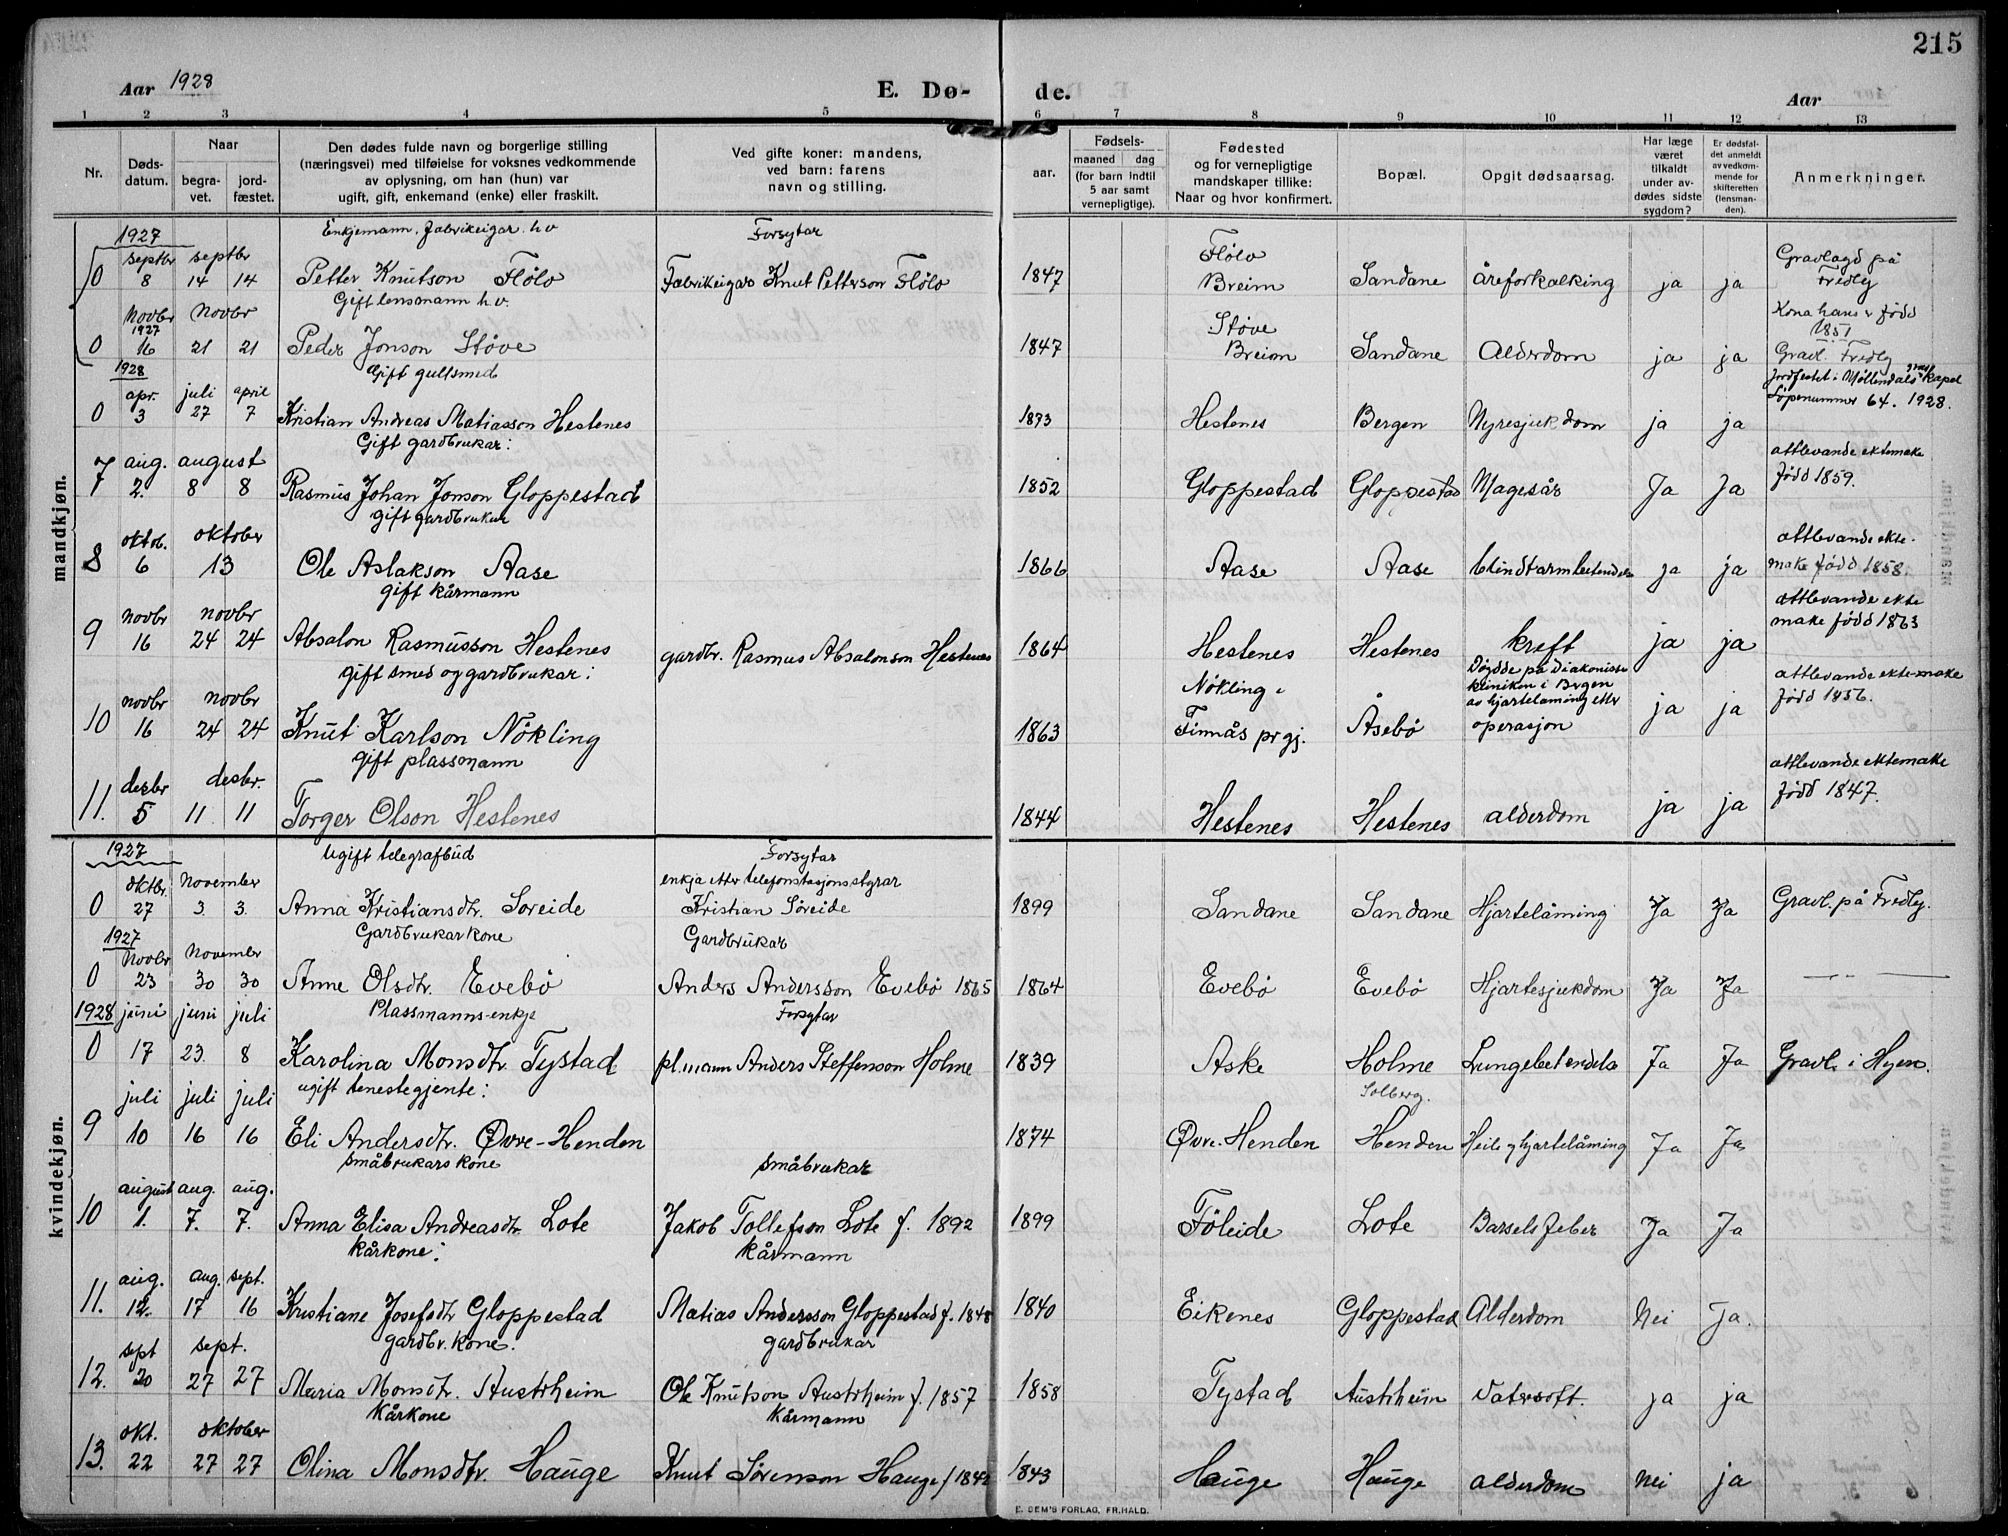 215
Aar 1928
E. Dø-
de.
Aar
1 2 3 4 5 6 7 8 9 10 11 12 13
Nr.
Døds-
datum.
Naar
begra-
vet.
jord-
fæstet.
Den dødes fulde navn og borgerlige stilling
(næringsvei) med tilføielse for voksnes vedkommende
av oplysning, om han (hun) var
ugift, gift, enkemand (enke) eller fraskilt.
Ved gifte koner: mandens,
ved barn: farens
navn og stilling.
Fødsels-
aar.
maaned dag
(for barn indtil
5 aar samt
vernepligtige).
Fødested
og for vernepligtige
mandskaper tillike:
Naar og hvor konfirmert.
Bopæl.
Opgit dødsaarsag.
Har læge
været
tilkaldt
under av-
dødes sidste
sygdom?
Er dødsfal-
det anmeldt
av vedkom-
mende for
skifteretten
(lensman-
den).
Anmerkninger.
mandkjøn.
1927 Enkjemann, fabrikeigar h.v. Forsytar
septbr septbr Flølo Gravlagd på
0 8 14 14 Petter Knutson Flølo Fabrikeigar Knut Petterson Flølo 1847 Breim Sandane åreforkalking ja ja Fredly
Gift lensmann h.v. Kona hans er fødd
Novbr Novbr Støve 1851
1927
0 16 21 21 Peder Jonson Støve 1847 Breim Sandane Alderdom ja ja Gravl. Fredly
1928 Gift gullsmed Jordfestet i Møllendals grav kapel
apr. juli april Løpenummer 64. 1928.
0 3 27 7 Kristian Andreas Matiasson Hestenes 1873 Hestenes Bergen Nyresjukdom ja ja
Gift gardbrukar: attlevande ektemake
aug. august fødd 1859.
7 2. 8 8 Rasmus Johan Jonson Gloppestad 1852 Gloppestad Gloppestad Magesår Ja Ja
gift gardbrukar
oktob. oktober attlevande ekte-
8 6 13 Ole Aslakson Aase 1866 Aase Aase blindtarmbetendelse ja ja make fødd 1858.
gift kårmann attlevande ekte
novbr novbr make fødd 1863
9 16 24 24 Absalon Rasmusson Hestenes gardbr. Rasmus Absalonson Hestenes 1864 Hestenes Hestenes kreft ja ja
gift smed og gardbrukar: Døydde på Diakonisse
Nökling i kliniken i Bergen attlevande ektemake
novbr novbr av hjartelåming etter fødd 1856.
10 16 24 24 Knut Karlson Nökling 1863 Finnås prgj. Åsebö operasjon ja ja
gift plassmann
desbr desbr. attlevande ektemake
11. 5 11 11 Torger Olson Hestenes 1844 Hestenes Hestenes alderdom ja ja fødd 1847.
kvindekjøn.
1927 Ugift telegrafbud Forsytar
oktbr. November enkja etter telefonstasjonsstyrar
0 27 3. 3. Anna Kristiansdtr. Soreide Kristian Søreide 1899 Sandane Sandane Hjartelåming Ja Ja Gravl. på Fredly.
1927 Gardbrukarkone Gardbrukar
Novbr November
0 23 30 30 Anne Olsdtr. Evebø Anders Andersson Evebø 1865 1864 Evebø Evebø Hjartesjukdom Ja Ja — " —
1928 juni juni juli Plassmanns-enkje Forsytar
0 17 23. 8 Karolina Monsdtr. Tystad pl.mann Anders Steffenson Holme 1839 Aske Holme Lungebetendelse Ja Ja Gravl. i Hyen.
ugift tenestegjente: Solberg.
juli juli juli
9 10 16 16 Eli Andersdtr. Øvre-Henden 1874 Øvre-Henden Henden Heile og hjartelåming Ja Ja
småbrukars kone småbrukar
august aug. aug.
10 1. 7. 7. Anna Elisa Andreasdtr. Lote Jakob Tollefson Lote f. 1892 1899 Föleide Lote Barselsfeber Ja Ja
kårkone: kårmann
aug. aug. sept.
11. 12. 17 16 Kristiane Josefsdtr Gloppestad Matias Andersson Gloppestad f. 1848 1840 Eikenes Gloppestad Alderdom Nei Ja.
gardbr. kone. gardbrukar
sept sept.
12. 20 27 27 Maria Monsdtr. Austrheim Ole Knutson Austrheim f. 1857 1858 Tystad Austrheim Vatersott. ja ja
Kårkone Kårmann
okt. oktober
13. 22 27 27 Olina Monsdtr. Hauge Knut Sørenson Hauge f 1842 1843 Hauge Hauge alderdom Nei ja
E. SEM'S FORLAG, FR.HALD.